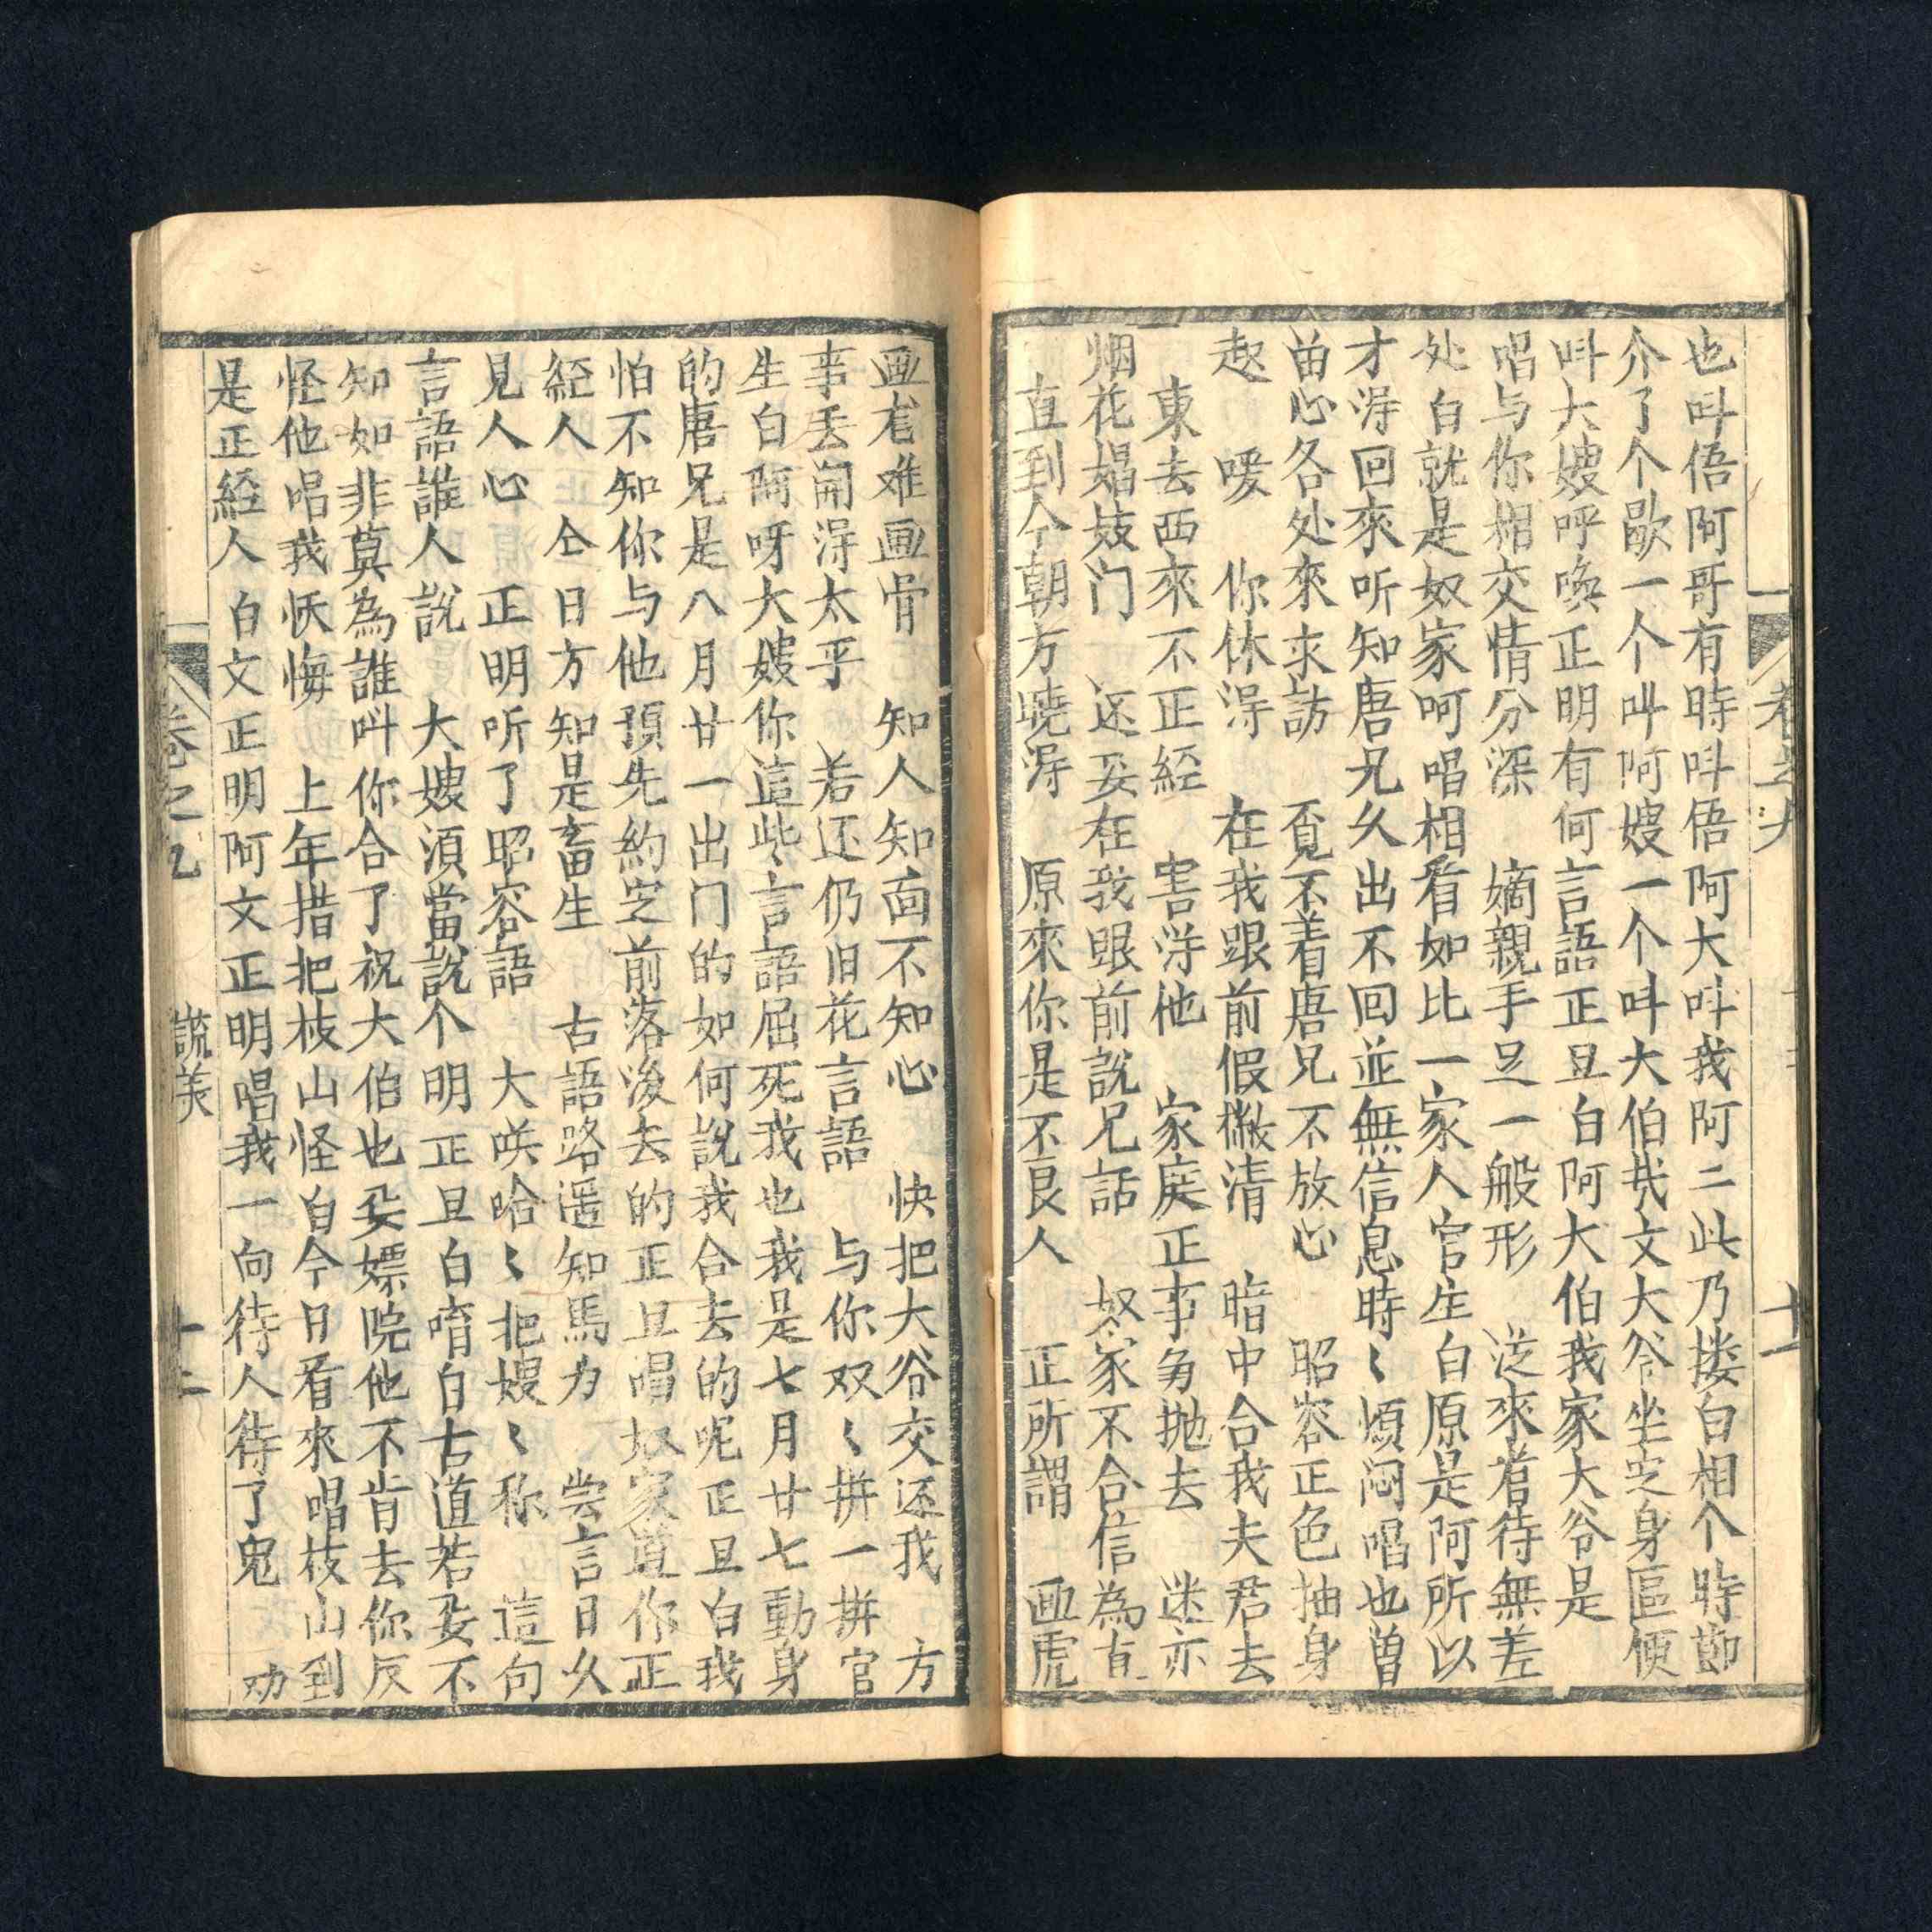 也呌俉阿哥有時呌俉阿大呌我阿二此乃搂白相个時節
介了个歇一个叫阿嫂一个呌大伯哉文大爷坐定身區便
呌大嫂呼喚正明有何言語正旦白阿大伯我家大爷是
唱与你相交情分深　嫡親手足一般形　从來看待無差
处白就是奴家呵唱相看如比一家人官生白原是阿所以
才淂回來听知唐兄久出不回並無信息時〻煩闷唱也曾
苗心各处來求訪　覔不着唐兄不放心　昭容正色抽身
起　嗳　你休淂　在我跟前假撇清　暗中合我夫君去
東去西來不正経　害淂他　家庭正事多抛去　迷亦
烟花娼妓门　还要在我眼前說兄話　奴家不合信為真
直到今朝方曉淂　原來你是不良人　正所謂　画虎
画皮难画骨　知人知面不知心　快把大爷交还我　方
事丢開淂太乎　若还仍旧花言語　与你双〻拼一拼官
生白阿呀大嫂你這些言語屈死我也我是七月廿七動身
的唐兄是八月廿一出门的如何說我合去的呢正旦白我
怕不知你与他預先約定前落後去的正旦唱奴家道你正
経人　仝日方知是畜生　古語路遥知馬力　尝言日久
見人心　正明听了昭容語　大咲哈〻把嫂〻称　這句
言語誰人說　大嫂湏當說个明正旦白啃白古道若要不
知如非莫為誰叫你合了祝大伯也要嫖院他不肯去你反
怪他唱我恹悔　上年措把枝山怪白今日看來唱枝山到
是正経人　白文正明阿文正明唱我一向待人待了鬼　劝
卷之九
十一
卷之九
謊美
十二